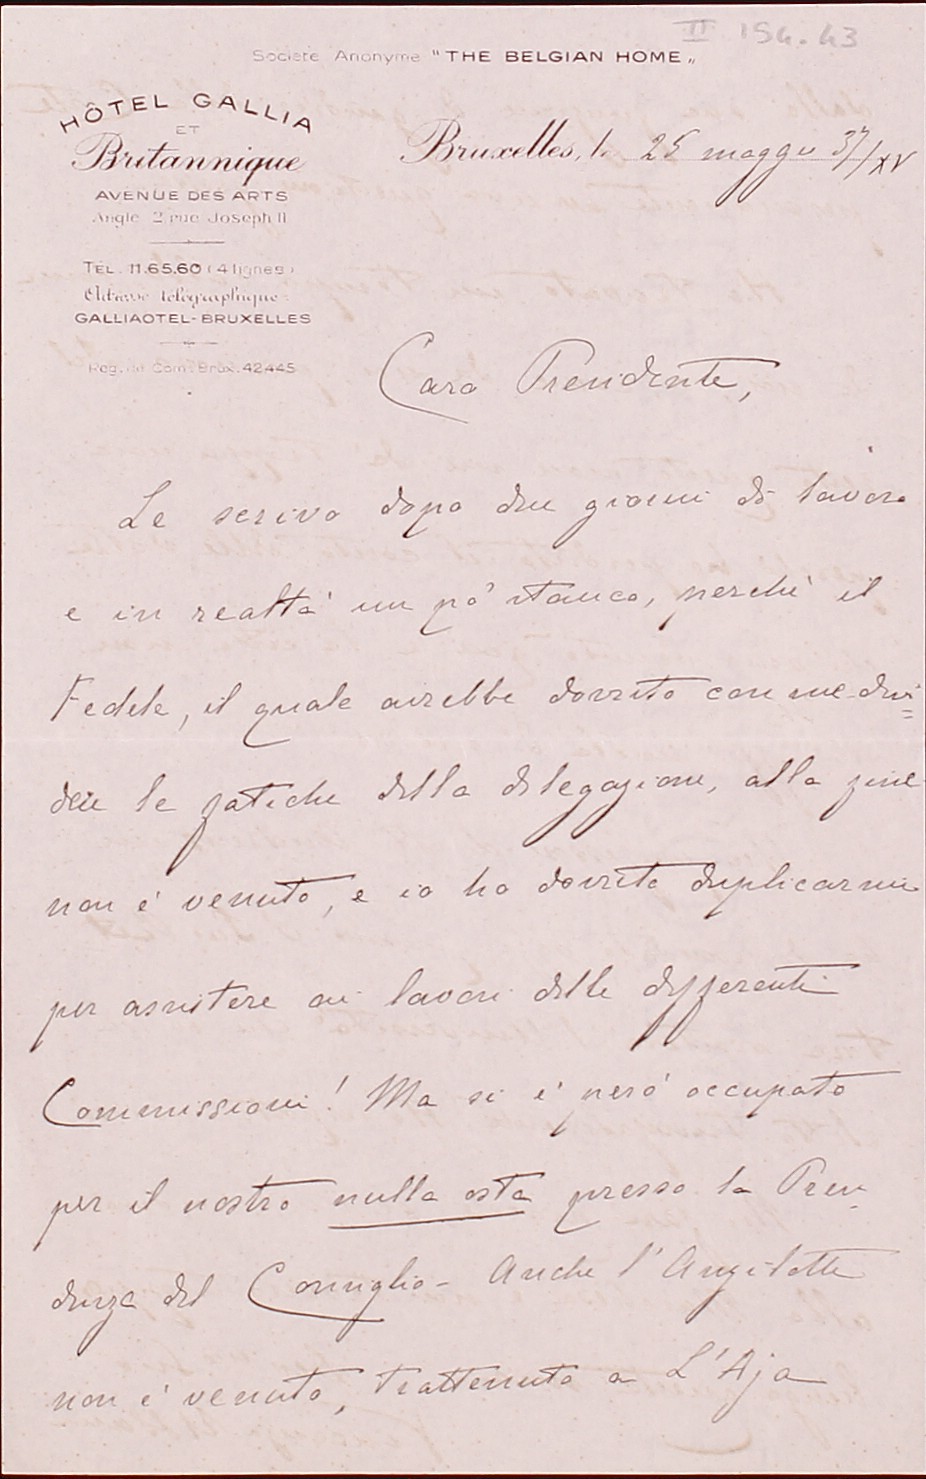 II 154.43
Societe Anonyme "THE BELGIAN HOME„
HÔTEL GALLIA
ET
Britannique
AVENUE DES ARTS
Angle 2 rue Joseph II
TÉL. 11.65.60 (4 lignes)
Adresse télégraphique:
GALLIAOTEL-BRUXELLES
Reg. du Com. Brux. 42445
Bruxelles, le 25 maggio 37/XV
Caro Presidente,
Le scrivo dopo due giorni di lavoro
e in realtà un pò stanco, perchè il
Fedele, il quale avrebbe dovuto con me divi=
dere le fatiche della delegazione, alla fine
non è venuto, e io ho dovuto duplicarmi
per assistere ai lavori delle differenti
Commissioni! Ma si è però occupato
per il nostro nulla osta presso la Presi-
denza del Consiglio - Anche l'Angelotti
non è venuto, trattenuto a L'Aja